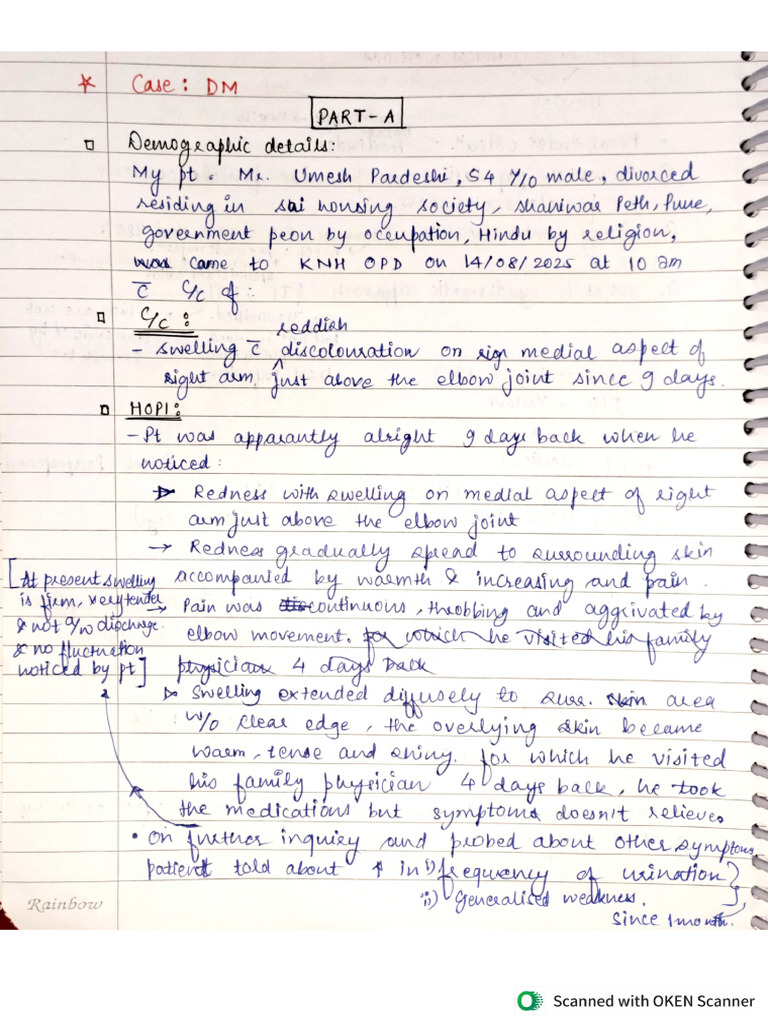 * Case: DM
PART-A
Demographic details:
My pt. Mr. Umesh Pardeshi, 54 Y/O male, divorced
residing in sai housing society, shaniwar Peth, Pune,
government peon by occupation, Hindu by religion,
was came to KNH OPD on 14/08/2025 at 10 am
c̄ C/C of:
C/C:
reddish
- swelling c̄ ^ discolouration on rig medial aspect of
right arm, just above the elbow joint since 9 days.
HOPI:
- Pt was apparantly alright 9 days back when he
noticed:
→ Redness with swelling on medial aspect of right
arm just above the elbow joint
→ Redness gradually spread to surrounding skin
accompanied by warmth & increasing and pain.
[At present swelling
is firm, very tender
& not a/w discharge
& no fluctuation
noticed by pt]
→ Pain was continuous, throbbing and aggrivated by
elbow movement. for which he visited his family
physician 4 days back
→ Swelling extended diffusely to surr. skin area
w/o clear edge, the overlying skin became
warm, tense and shiny. for which he visited
his family physician 4 days back, he took
the medications but symptoms doesn't relieve.
• On further inquiry and probed about other symptoms
patient told about ↑ in i) frequency of urination
ii) Generalised weakness.
since 1 month.
Rainbow
Scanned with OKEN Scanner